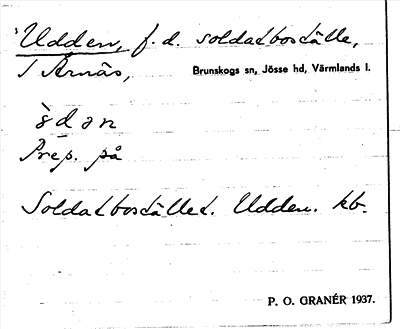 Udden, f. d. soldatboställe,
i Årnäs, Brunskogs sn, Jösse hd, Värmlands l.
Prep. på
Soldatbostället. Udden. kb.
P. O. GRANÉR 1937.